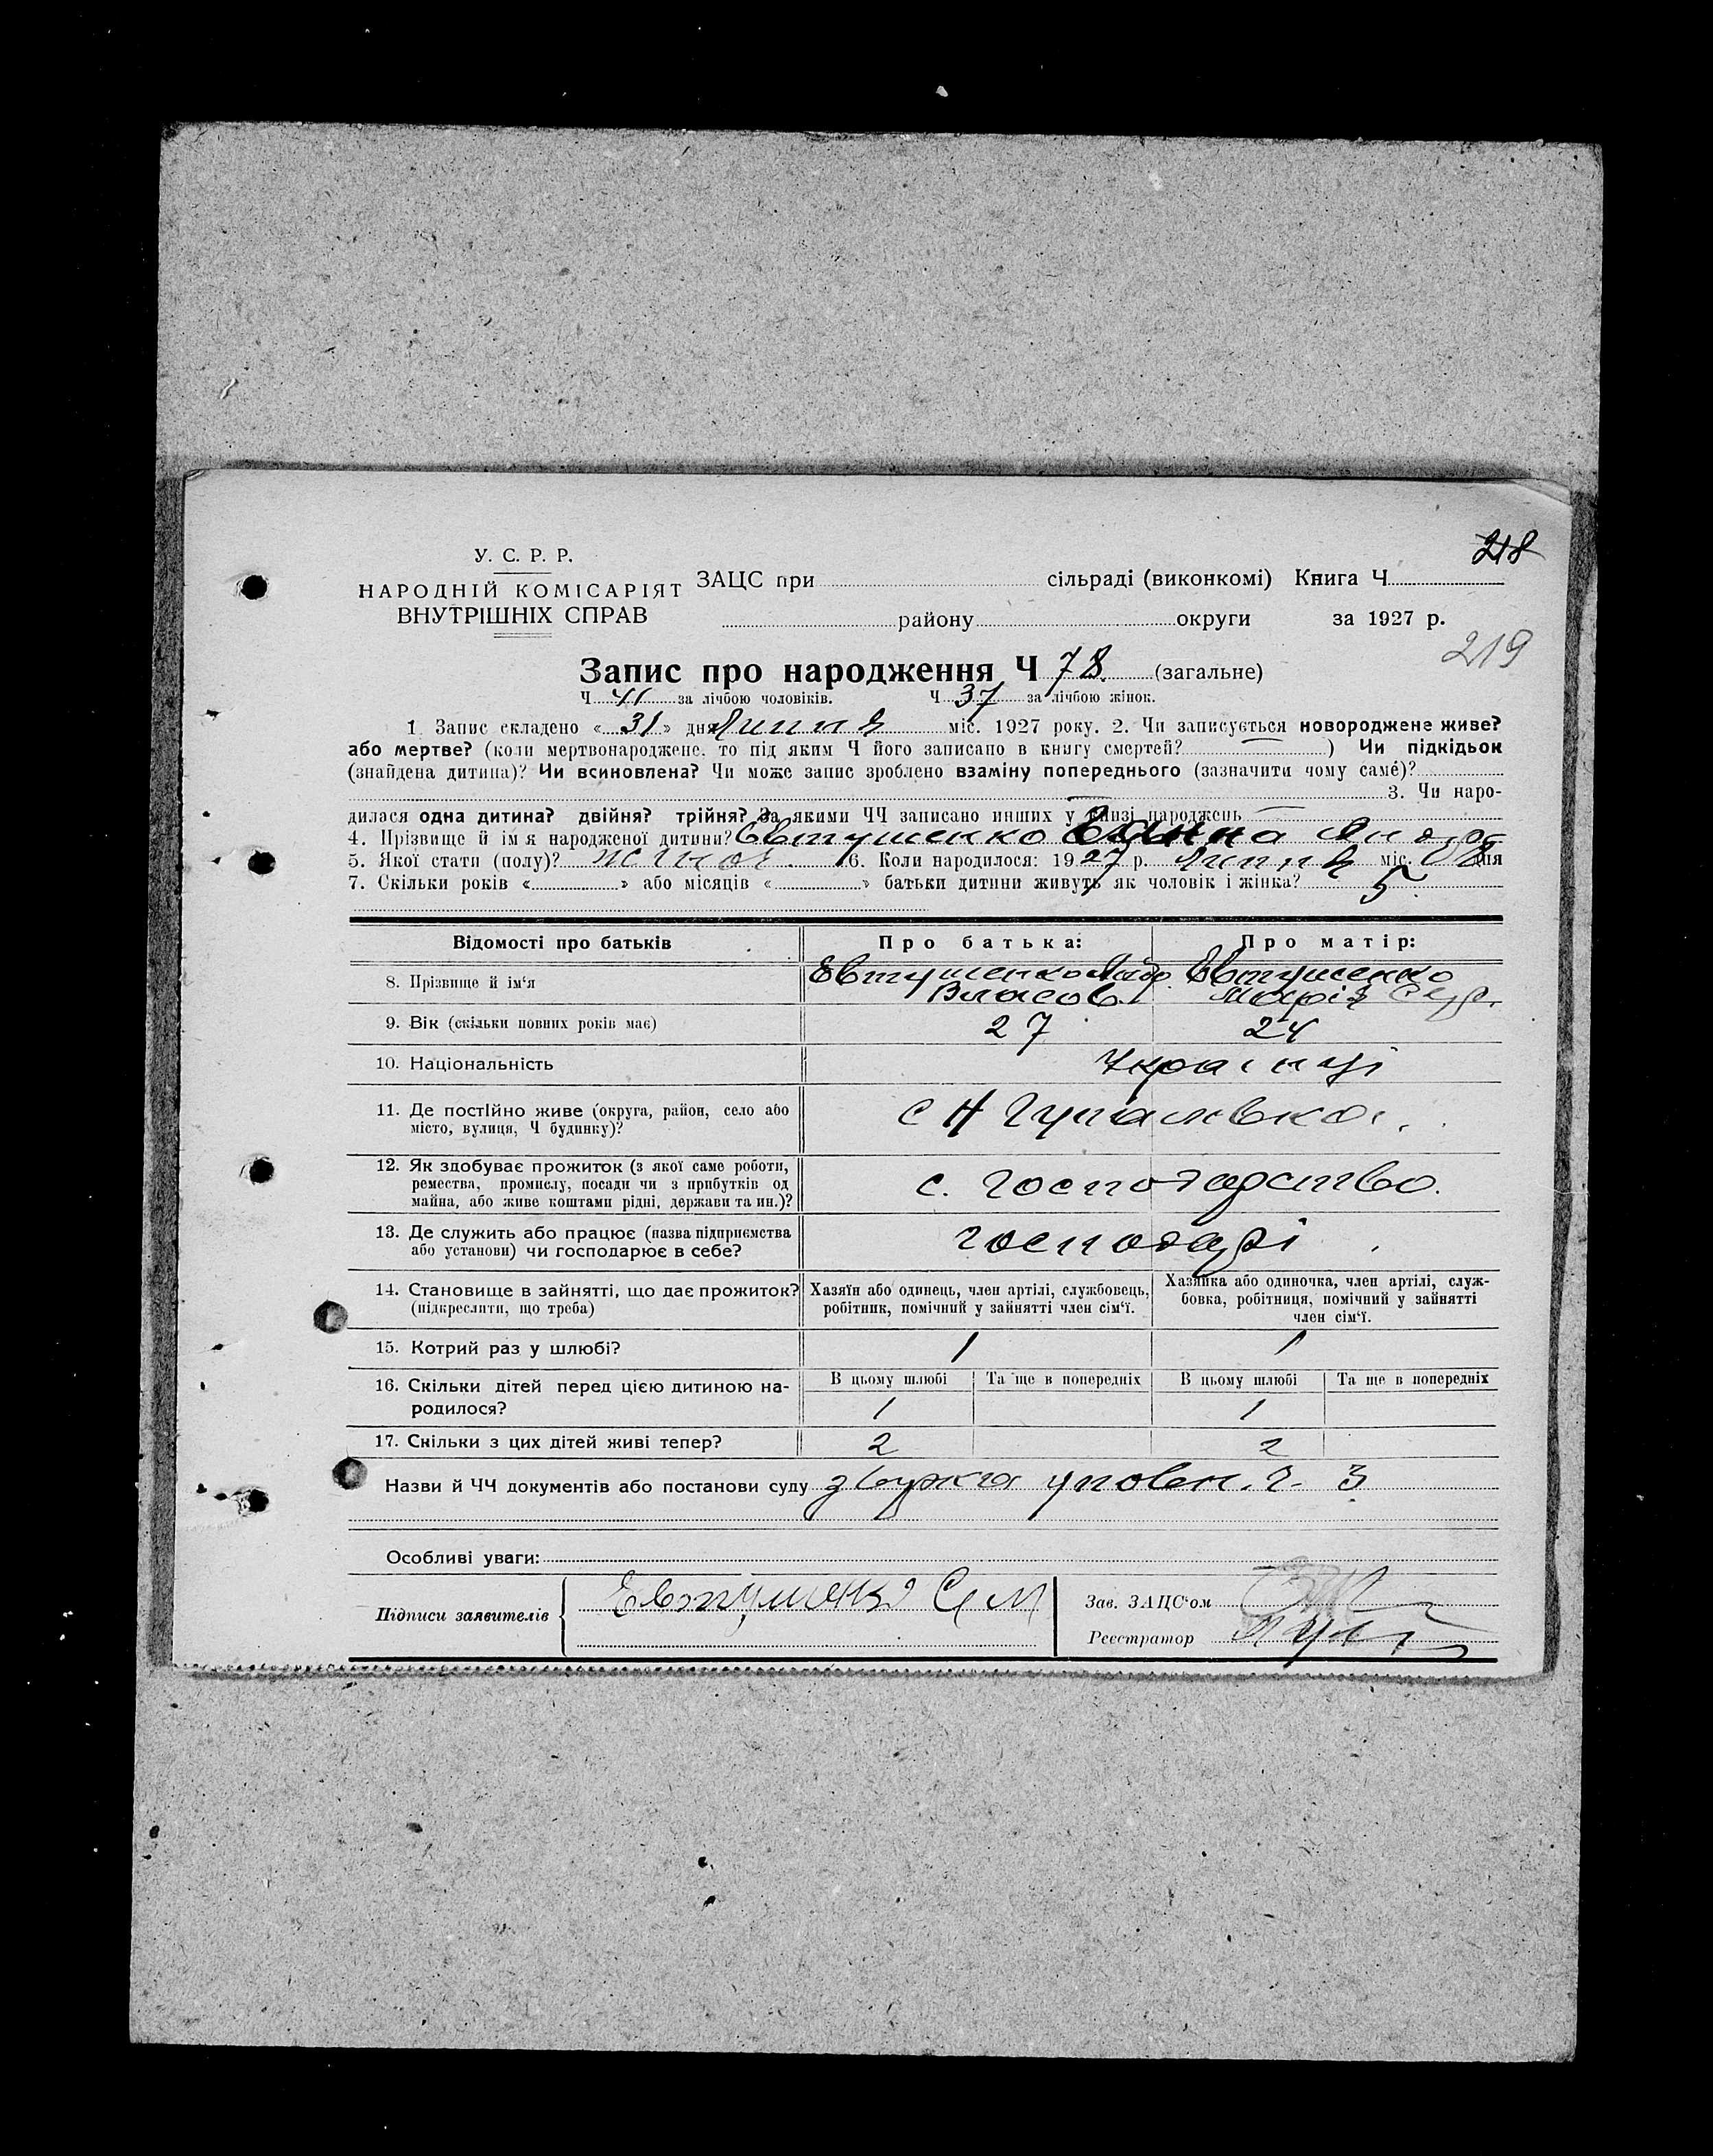 218
У. С. Р. Р.
НАРОДНІЙ КОМІСАРІЯТ
ВНУТРІШНІХ СПРАВ
ЗАЦС при сільраді (виконкомі) Книга Ч
району округи за 1927 р.
219
Запис про народження Ч 78 (загальне)
Ч 41 за лічбою чоловіків. Ч 37 за лічбою жінок.
1. Запис складено « 31 » дня Липня міс. 1927 року. 2. Чи записується новороджене живе?
або мертве? (коли мертвонароджене, то під яким Ч його записано в книгу смертей? — ) Чи підкідьок
(знайдена дитина)? Чи всиновлена? Чи може запис зроблено взаміну попереднього (зазначити чому саме́)?
3. Чи наро-
дилася одна дитина? двійня? трійня? За якими ЧЧ записано инших у книзі народжень —
4. Прізвище й ім'я народженої дитини? Євтушенко
5. Якої стати (полу)? жіноч. 6. Коли народилося: 1927 р. Липня міс. 08 дня
7. Скільки років « » або місяців « » батьки дитини живуть як чоловік і жінка? 5.
Відомості про батьків
Про батька:
Про матір:
8. Прізвище й ім'я
Евтушенко
Власов.
Евтушенко
Марія
9. Вік (скільки повних років має)
27
24
10. Національність
Українці
11. Де постІйно живе (округа, район, село або
місто, вулиця, Ч будинку)?
с Н
12. Як здобуває прожиток (з якої саме роботи,
ремества, промислу, посади чи з прибутків од
майна, або живе коштами рідні, держави та ин.)?
с. господарство.
13. Де служить або працює (назва підприємства
або установи) чи господарює в себе?
господарі
14. Становище в зайнятті, що дає прожиток?
(підкреслити, що треба)
Хазяїн або одинець, член артілі, службовець,
робітник, помічний у зайнятті член сім'ї.
Хазяйка або одиночка, член артілі, служ-
бовка, робітниця, помічний у зайнятті
член сім'ї.
15. Котрий раз у шлюбі?
1
1
16. Скільки дітей перед цією дитиною на-
родилося?
В цьому шлюбі
Та ще в попередніх
В цьому шлюбі
Та ще в попередніх
1
1
17. Скільки з цих дітей живі тепер?
2
2
Назви й ЧЧ документів або постанови суду уповн. 3
Особливі уваги:
Підписи заявителів
Евтушенко
Зав. ЗАЦС'ом
Реєстратор